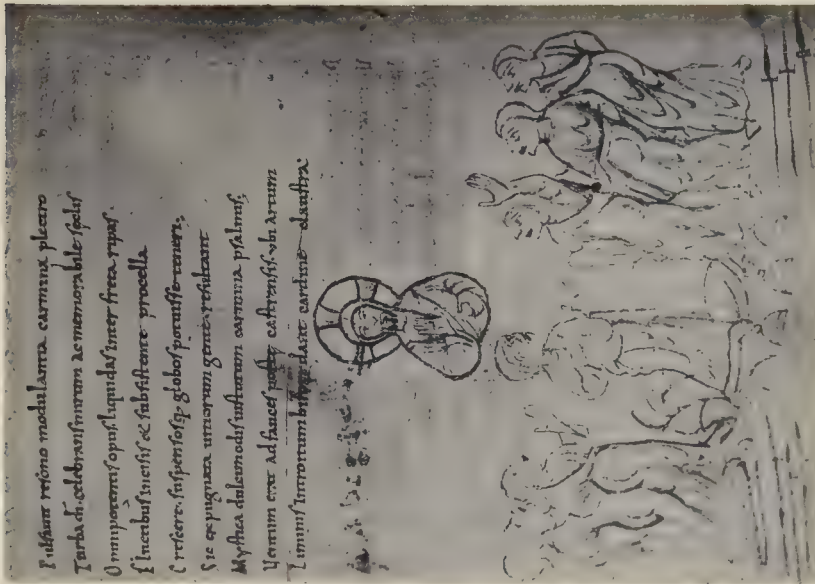 Pulsant resono modulantia carmina plectro
Turba dī. celebrans mirum ac memorabile seclis
Omnipotentis opus. liquidas inter freta ripas.
Fluctibus incisis et subsistente procella
Crescere. suspensosq; globos potuisse teneri;
Sic expugnata uitiorum gente resultant
Mystica dulcimodis uirtutum carmina psalmis;
Uentum erat ad fauces portę castrensis. ubi artum
Liminis introitum bifori dant cardine claustra.